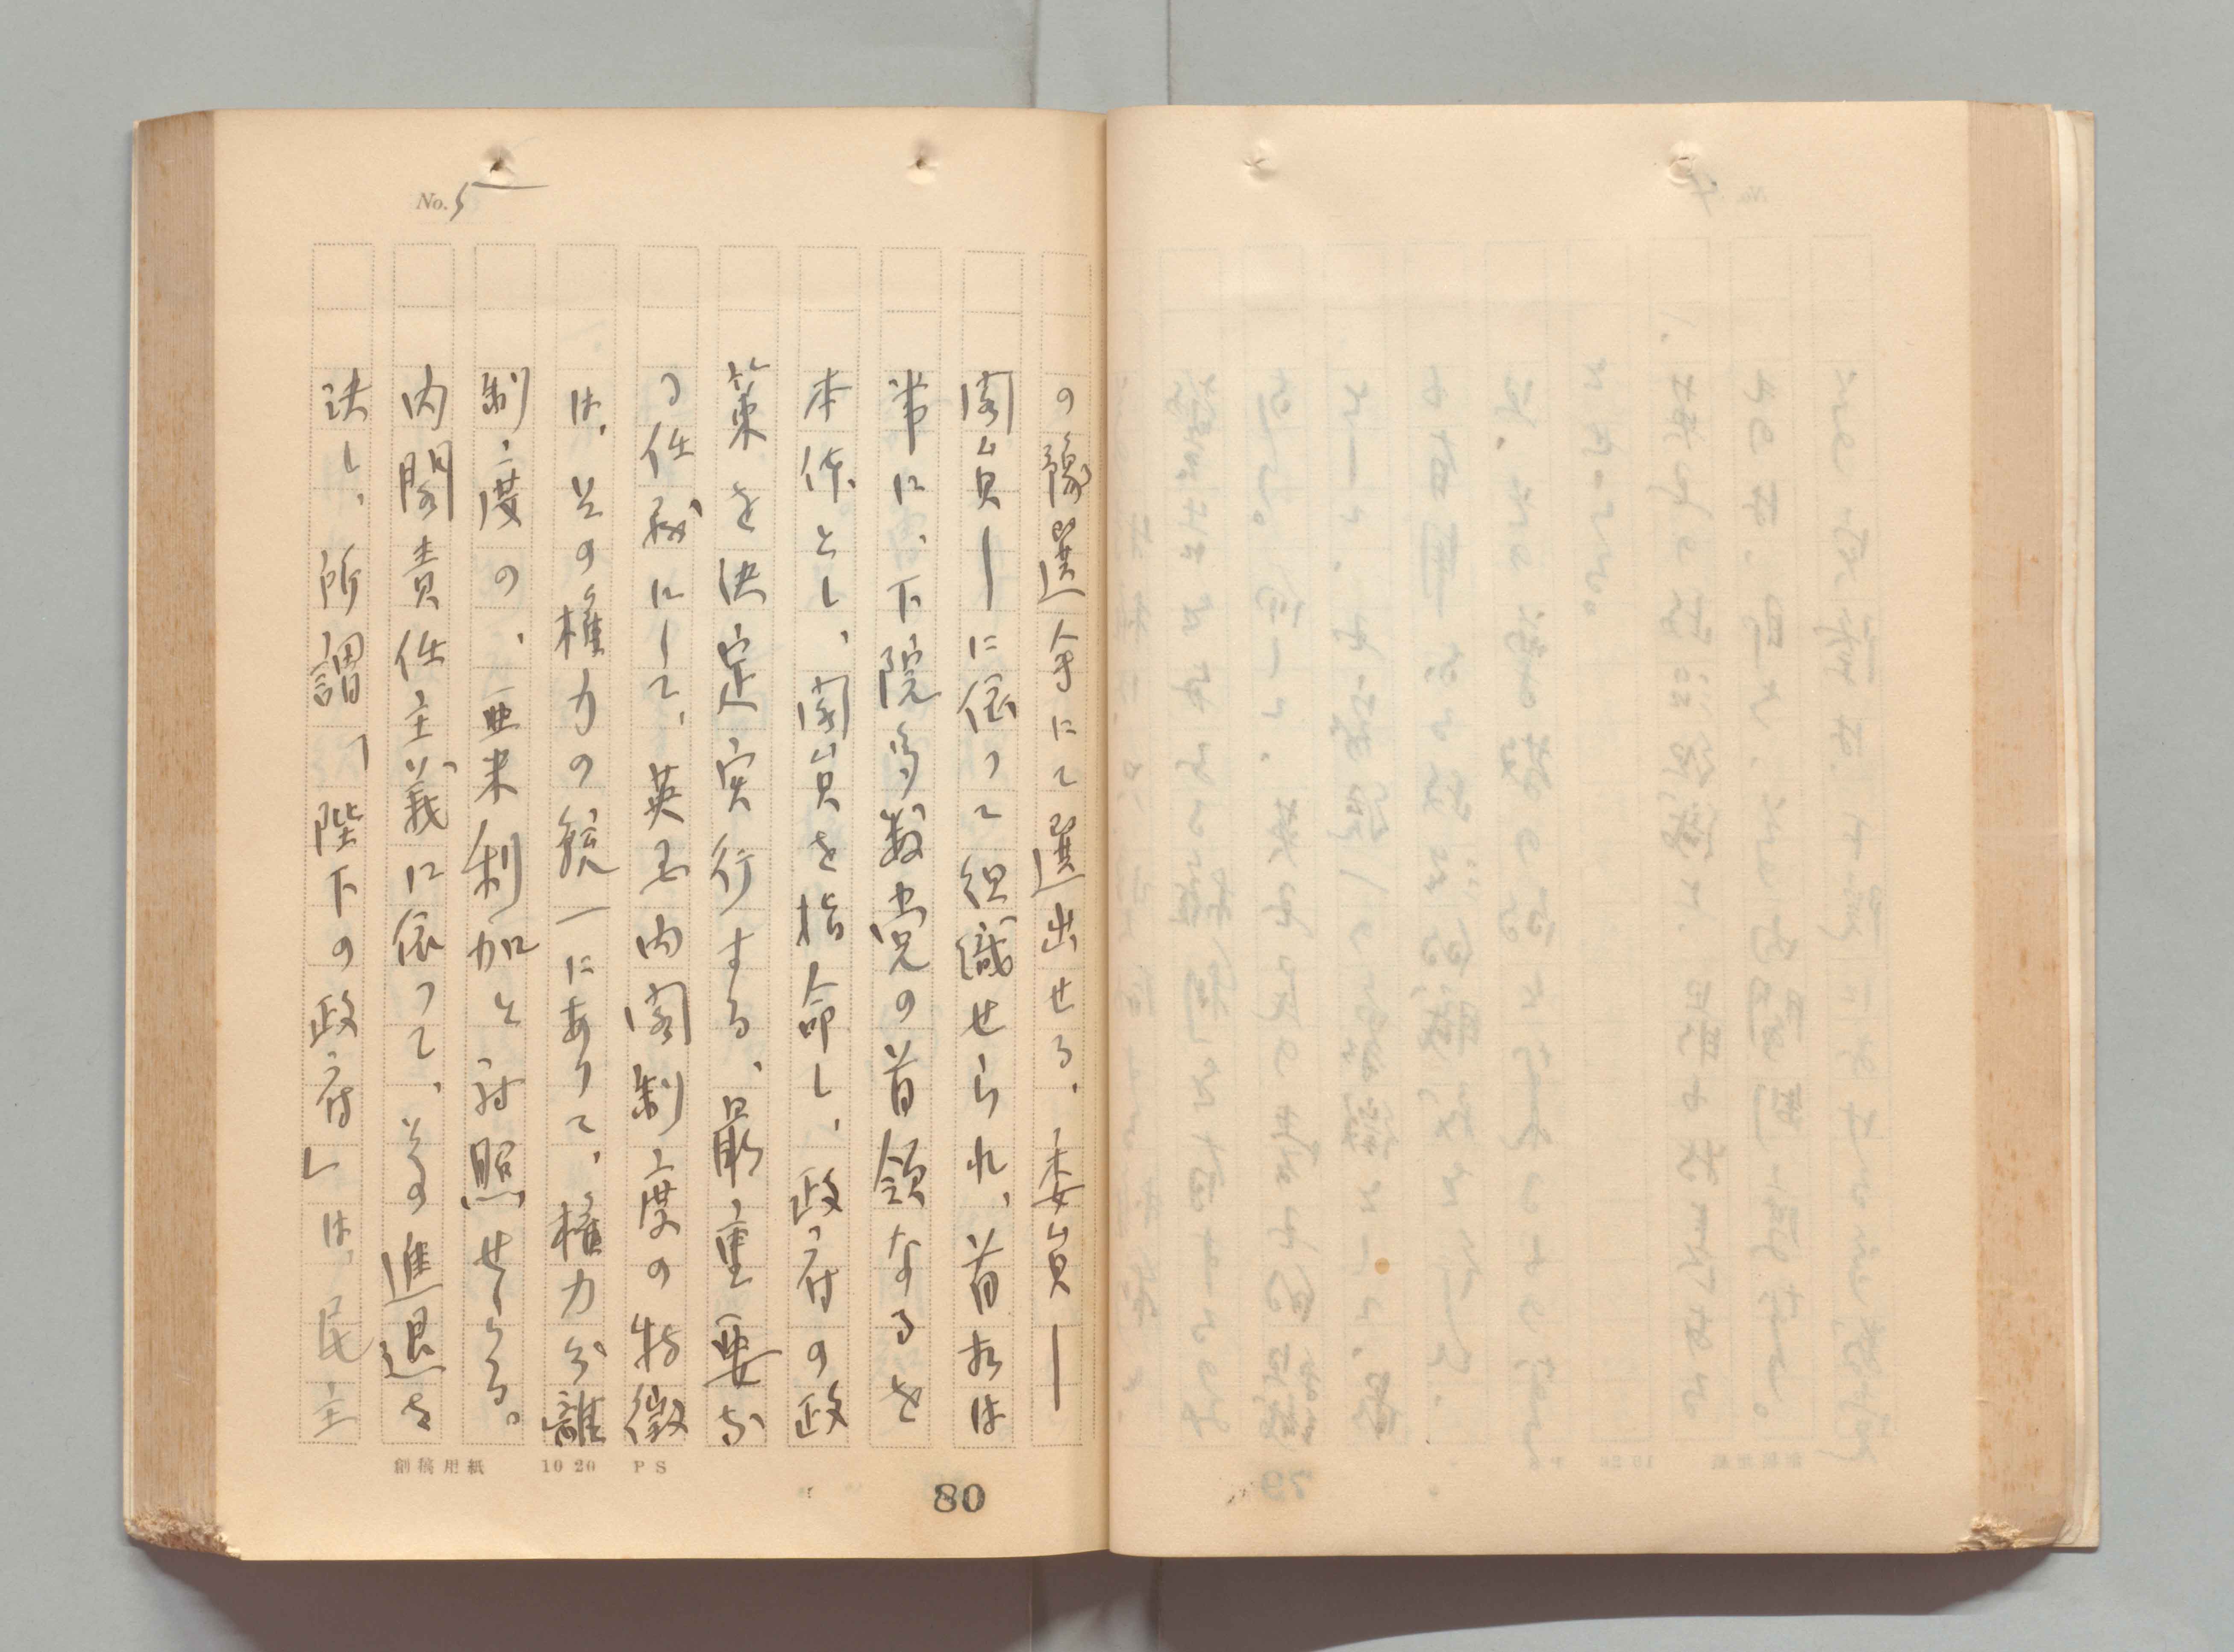 No. 5
の豫選会にて選出せる、委員―
閣員―に依って組織せられ、首相は
常に、下院多数党の首領なるを
本体とし、閣員を指命し、政府の政
策を決定実行する、最重要な
る任務にして、英国内閣制度の特徴
は、その権力の統一にありて、権力分離
制度の、亜米利加と対照せらる。
内閣責任主義に依って、その進退を
決し、所謂、「陛下の政府」は、民主
創稿用紙 10 20 PS
80